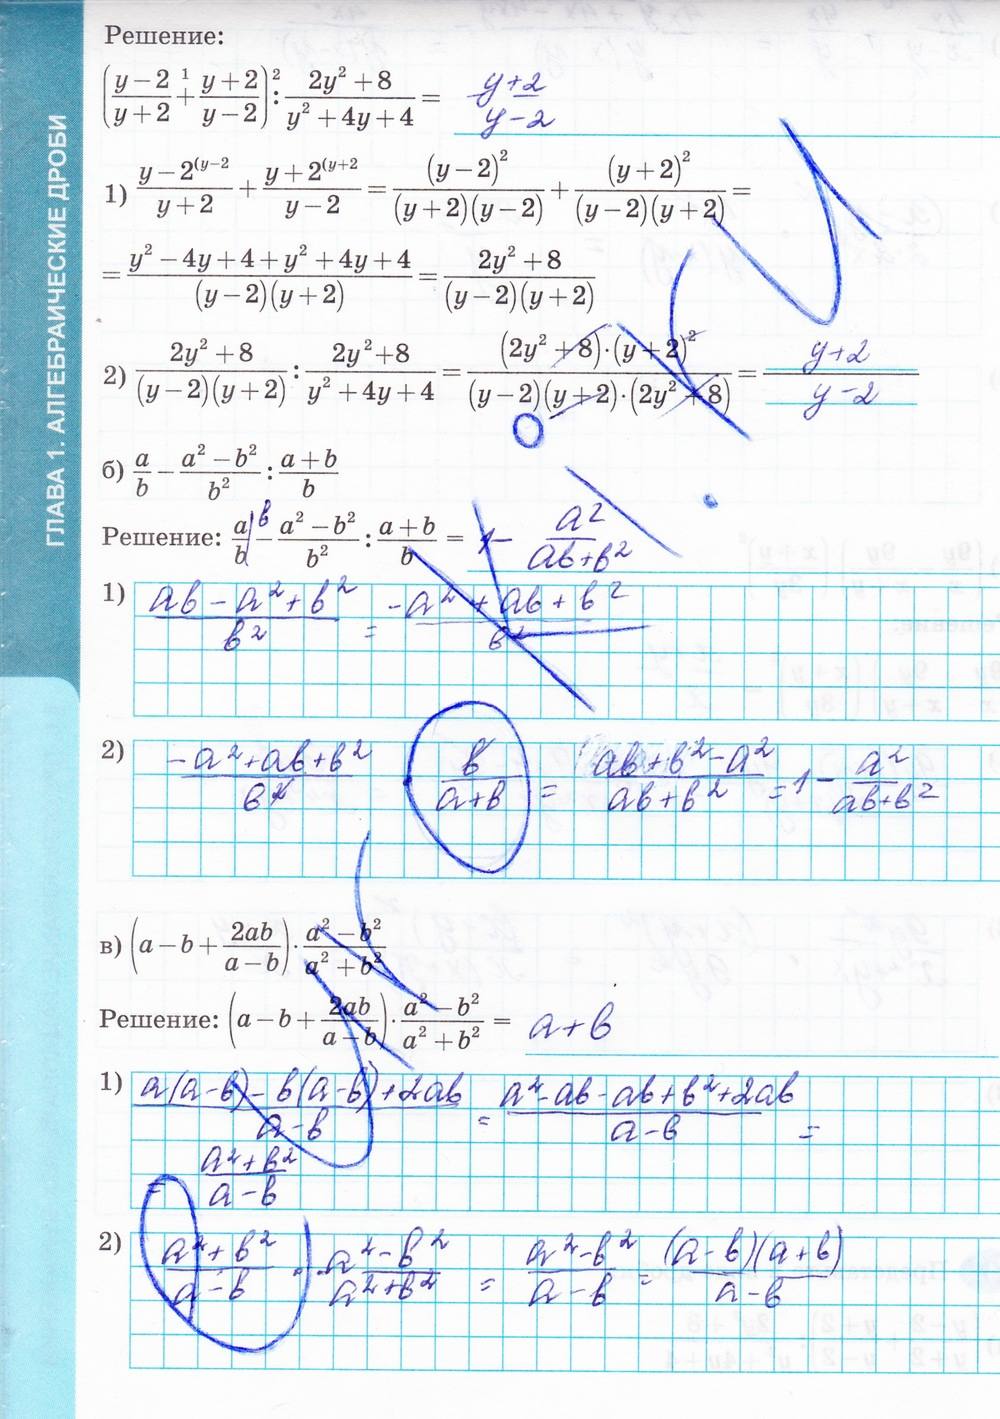 ГЛАВА 1. АЛГЕБРАИЧЕСКИЕ ДРОБИ
Решение:
((y−2)/(y+2) +¹ (y+2)/(y−2)) :² (2y²+8)/(y²+4y+4) = (y+2)/(y−2)
1) (y−2^(y−2)/(y+2) + (y+2^(y+2)/(y−2) = (y−2)²/((y+2)(y−2)) + (y+2)²/((y−2)(y+2)) =
= (y²−4y+4+y²+4y+4)/((y−2)(y+2)) = (2y²+8)/((y−2)(y+2))
2) (2y²+8)/((y−2)(y+2)) : (2y²+8)/(y²+4y+4) = ((2y²+8)·(y+2)²)/((y−2)(y+2)·(2y²+8)) = (y+2)/(y−2)
б) a/b − (a²−b²)/b² : (a+b)/b
Решение: a/b |b − (a²−b²)/b² : (a+b)/b = 1 − a²/(ab+b²)
1) (ab−a²+b²)/b² = (−a²+ab+b²)/b²
2) (−a²+ab+b²)/b² · b/(a+b) = (ab+b²−a²)/(ab+b²) = 1 − a²/(ab+b²)
в) (a−b+2ab/(a−b))·(a²−b²)/(a²+b²)
Решение: (a−b+2ab/(a−b))·(a²−b²)/(a²+b²) = a+b
1) (a(a−b)−b(a−b)+2ab)/(a−b) = (a²−ab−ab+b²+2ab)/(a−b) =
= (a²+b²)/(a−b)
2) (a²+b²)/(a−b) · (a²−b²)/(a²+b²) = (a²−b²)/(a−b) = ((a−b)(a+b))/(a−b)